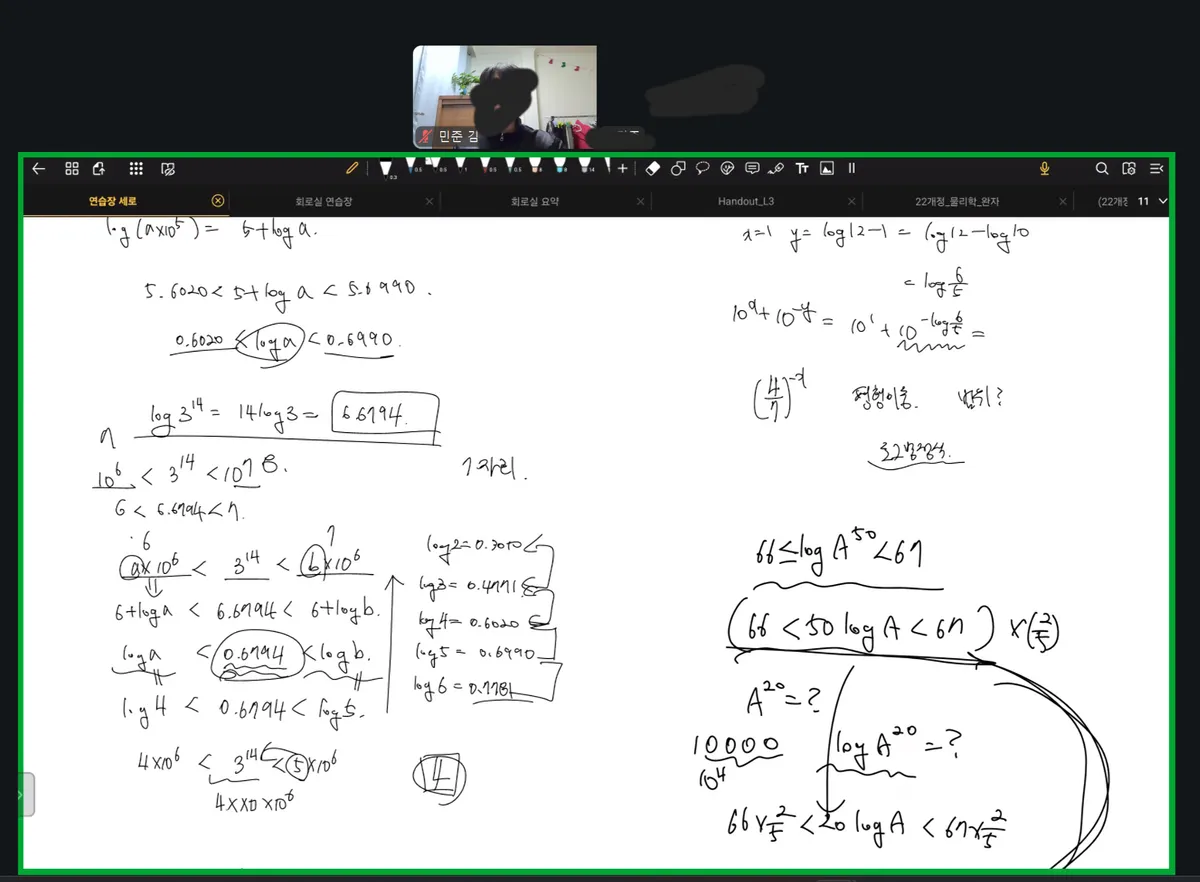 민준 김
연습장 세로
회로실 연습장
회로실 요약
Handout_L3
22개정_물리학_완자
(22개정
11
log(a×10⁵) = 5+log a.
5.6020 < 5+log a < 5.6990.
0.6020 < log a < 0.6990.
log 3¹⁴ = 14log3 = 6.6794.
10⁶ < 3¹⁴ < 10⁷
6 < 6.6794 < 7.
7자리.
a×10⁶ < 3¹⁴ < b×10⁶
6+log a < 6.6794 < 6+log b.
log a < 0.6794 < log b.
log 4 < 0.6794 < log 5.
4×10⁶ < 3¹⁴ < 5×10⁶
4××0×10⁶
log2=0.3010
log3=0.4771
log4=0.6020
log5=0.6990
log6=0.7781
4
x=1 y=log12-1 = log12-log10
= log 6/5
10ˣ+10⁻ʸ = 10¹+10^(-log 6/5) =
(4/7)⁻ˣ 평행이동. 범위?
66≤log A⁵⁰<67
(66<50 log A<67) ×(2/5)
A²⁰=?
10000
10⁴
log A²⁰=?
66×2/5 < 20 log A < 67×2/5